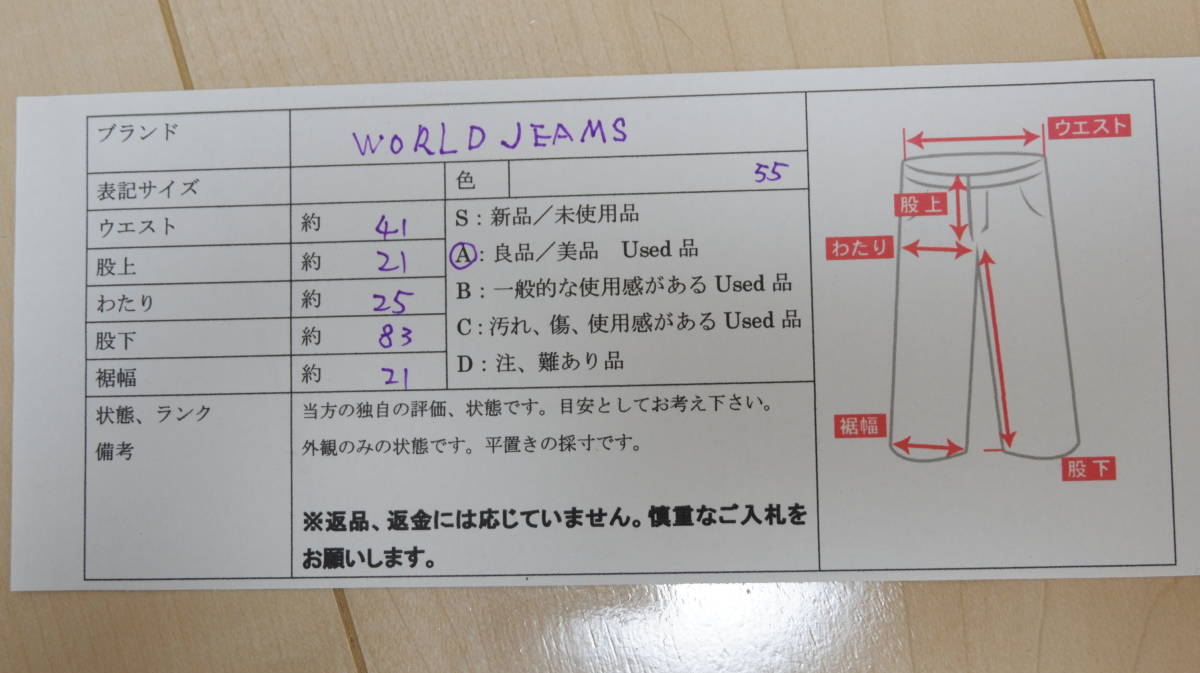 ブランド WORLD JEAMS
表記サイズ 色 55
ウエスト 約 41
股上 約 21
わたり 約 25
股下 約 83
裾幅 約 21
S：新品／未使用品
A：良品／美品 Used品
B：一般的な使用感があるUsed品
C：汚れ、傷、使用感があるUsed品
D：注、難あり品
状態、ランク
備考
当方の独自の評価、状態です。目安としてお考え下さい。
外観のみの状態です。平置きの採寸です。
※返品、返金には応じていません。慎重なご入札を
お願いします。
ウエスト
股上
わたり
裾幅
股下